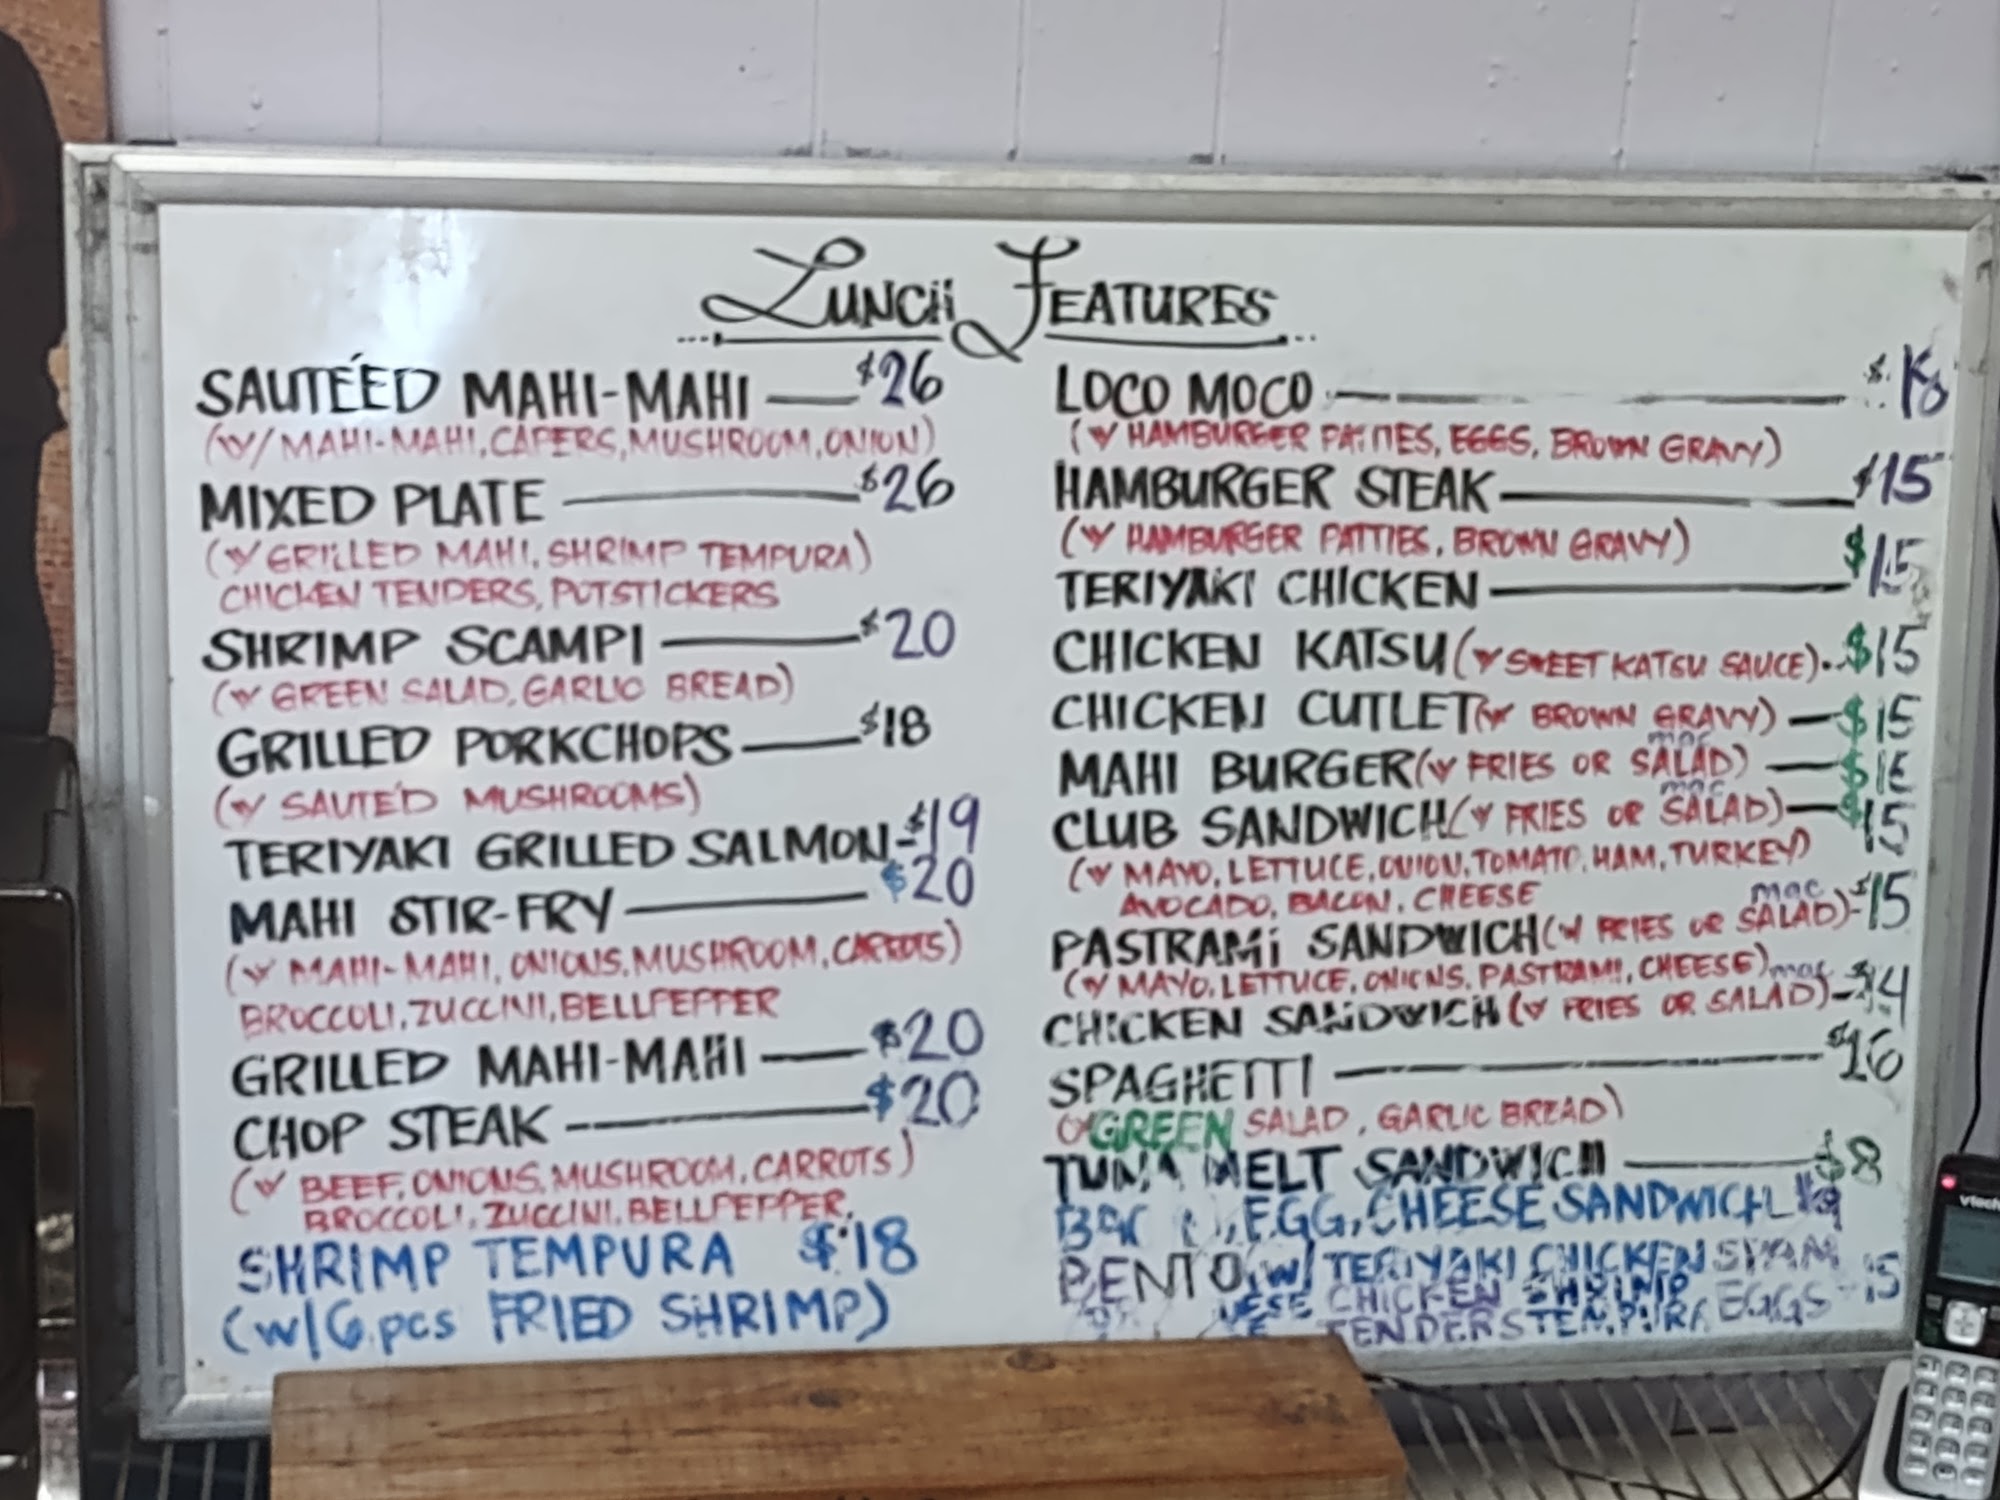 LUNCH FEATURES
SAUTÉED MAHI-MAHI — $26
(W/ MAHI-MAHI, CAPERS, MUSHROOM, ONION)
MIXED PLATE — $26
(W/ GRILLED MAHI, SHRIMP TEMPURA)
CHICKEN TENDERS, POTSTICKERS
SHRIMP SCAMPI — $20
(W/ GREEN SALAD, GARLIC BREAD)
GRILLED PORKCHOPS — $18
(W/ SAUTE'D MUSHROOMS)
TERIYAKI GRILLED SALMON - $19
MAHI STIR-FRY — $20
(W/ MAHI-MAHI, ONIONS, MUSHROOM, CARROTS)
BROCCOLI, ZUCCINI, BELLPEPPER
GRILLED MAHI-MAHI — $20
CHOP STEAK — $20
(W/ BEEF, ONIONS, MUSHROOM, CARROTS)
BROCCOLI, ZUCCINI, BELLPEPPER,
SHRIMP TEMPURA $18
(W/ 6 pcs FRIED SHRIMP)
LOCO MOCO — $
(W/ HAMBURGER PATTIES, EGGS, BROWN GRAVY)
HAMBURGER STEAK — $15
(W/ HAMBURGER PATTIES, BROWN GRAVY)
TERIYAKI CHICKEN — $15
CHICKEN KATSU (W/ SWEET KATSU SAUCE) - $15
CHICKEN CUTLET (W/ BROWN GRAVY) — $15
mac
MAHI BURGER (W/ FRIES OR SALAD) — $
mac
CLUB SANDWICH (W/ FRIES OR SALAD) — $15
(W/ MAYO, LETTUCE, ONION, TOMATO, HAM, TURKEY)
AVOCADO, BACON, CHEESE
mac
PASTRAMI SANDWICH (W/ FRIES OR SALAD) - $15
(W/ MAYO, LETTUCE, ONIONS, PASTRAMI, CHEESE)
mac
CHICKEN SANDWICH (W/ FRIES OR SALAD) - $14
SPAGHETTI — $16
GREEN SALAD, GARLIC BREAD)
TUNA MELT SANDWICH — $8
EGG, CHEESE SANDWICH
BENTO (W/ TERIYAKI CHICKEN SPAM
CHICKEN SHRIMP
TENDERS TEMPURA EGGS - 15
vtech